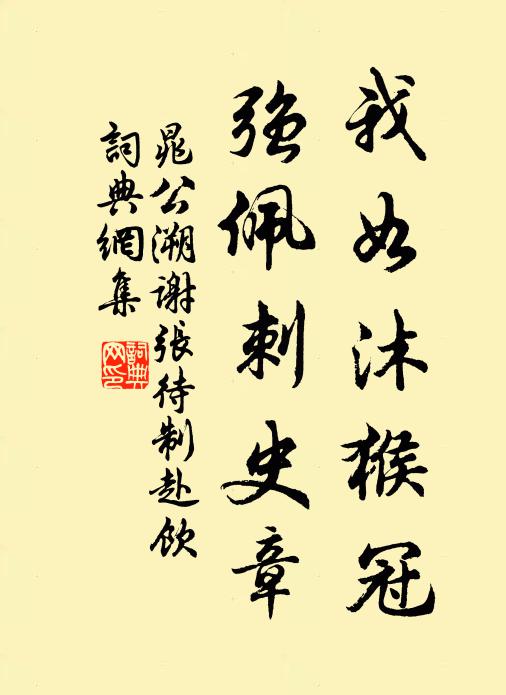 我如沐猴冠
强佩刺史章
晁公溯谢張待制赴飲
詞典網集
詞典
网印